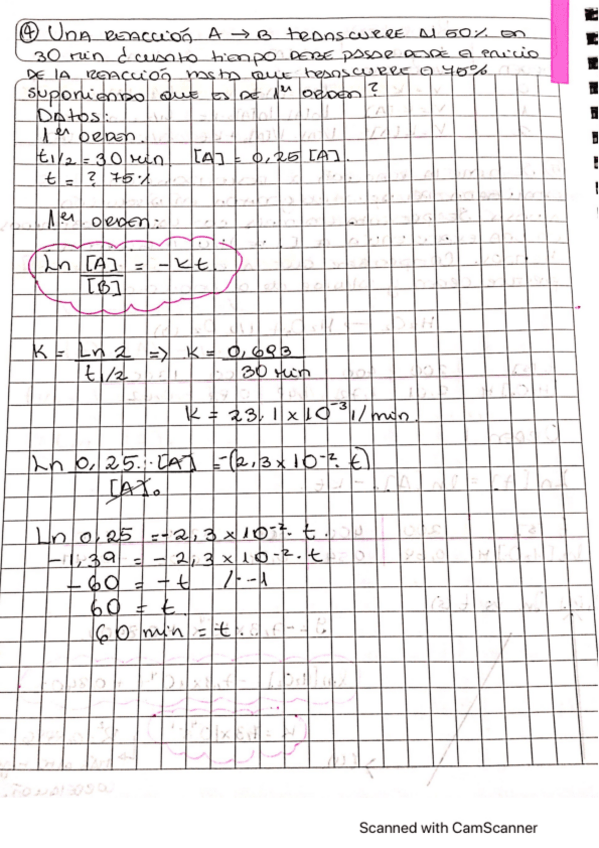 ④ UNA REACCIÓN A → B TRANSCURRE AL 50% EN
30 min ¿CUANTO TIEMPO DEBE PASAR DESDE EL INICIO
DE LA REACCIÓN HASTA QUE TRANSCURRE A 75%
SUPONIENDO QUE ES DE 1er ORDEN?
DATOS:
1er ORDEN.
t1/2 = 30 min. [A] = 0,25 [A].
t = ? 75%
1er ORDEN:
Ln [A] = -Kt.
[B]
K = Ln 2 => K = 0,693
t1/2 30 min
K = 23,1 x 10⁻³ 1/min.
Ln 0,25 · [A] = -(2,3 x 10⁻² · t)
[A]₀
Ln 0,25 = -2,3 x 10⁻² · t.
-1,39 = -2,3 x 10⁻² · t
-60 = -t /·-1
60 = t.
60 min = t.
Scanned with CamScanner